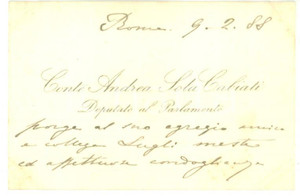 Roma 9. 2. 88
Conte Andrea Sola Cabiati
Deputato al Parlamento
porge al suo egregio amico
e collega Lugli meste
ed affettuose condoglianze